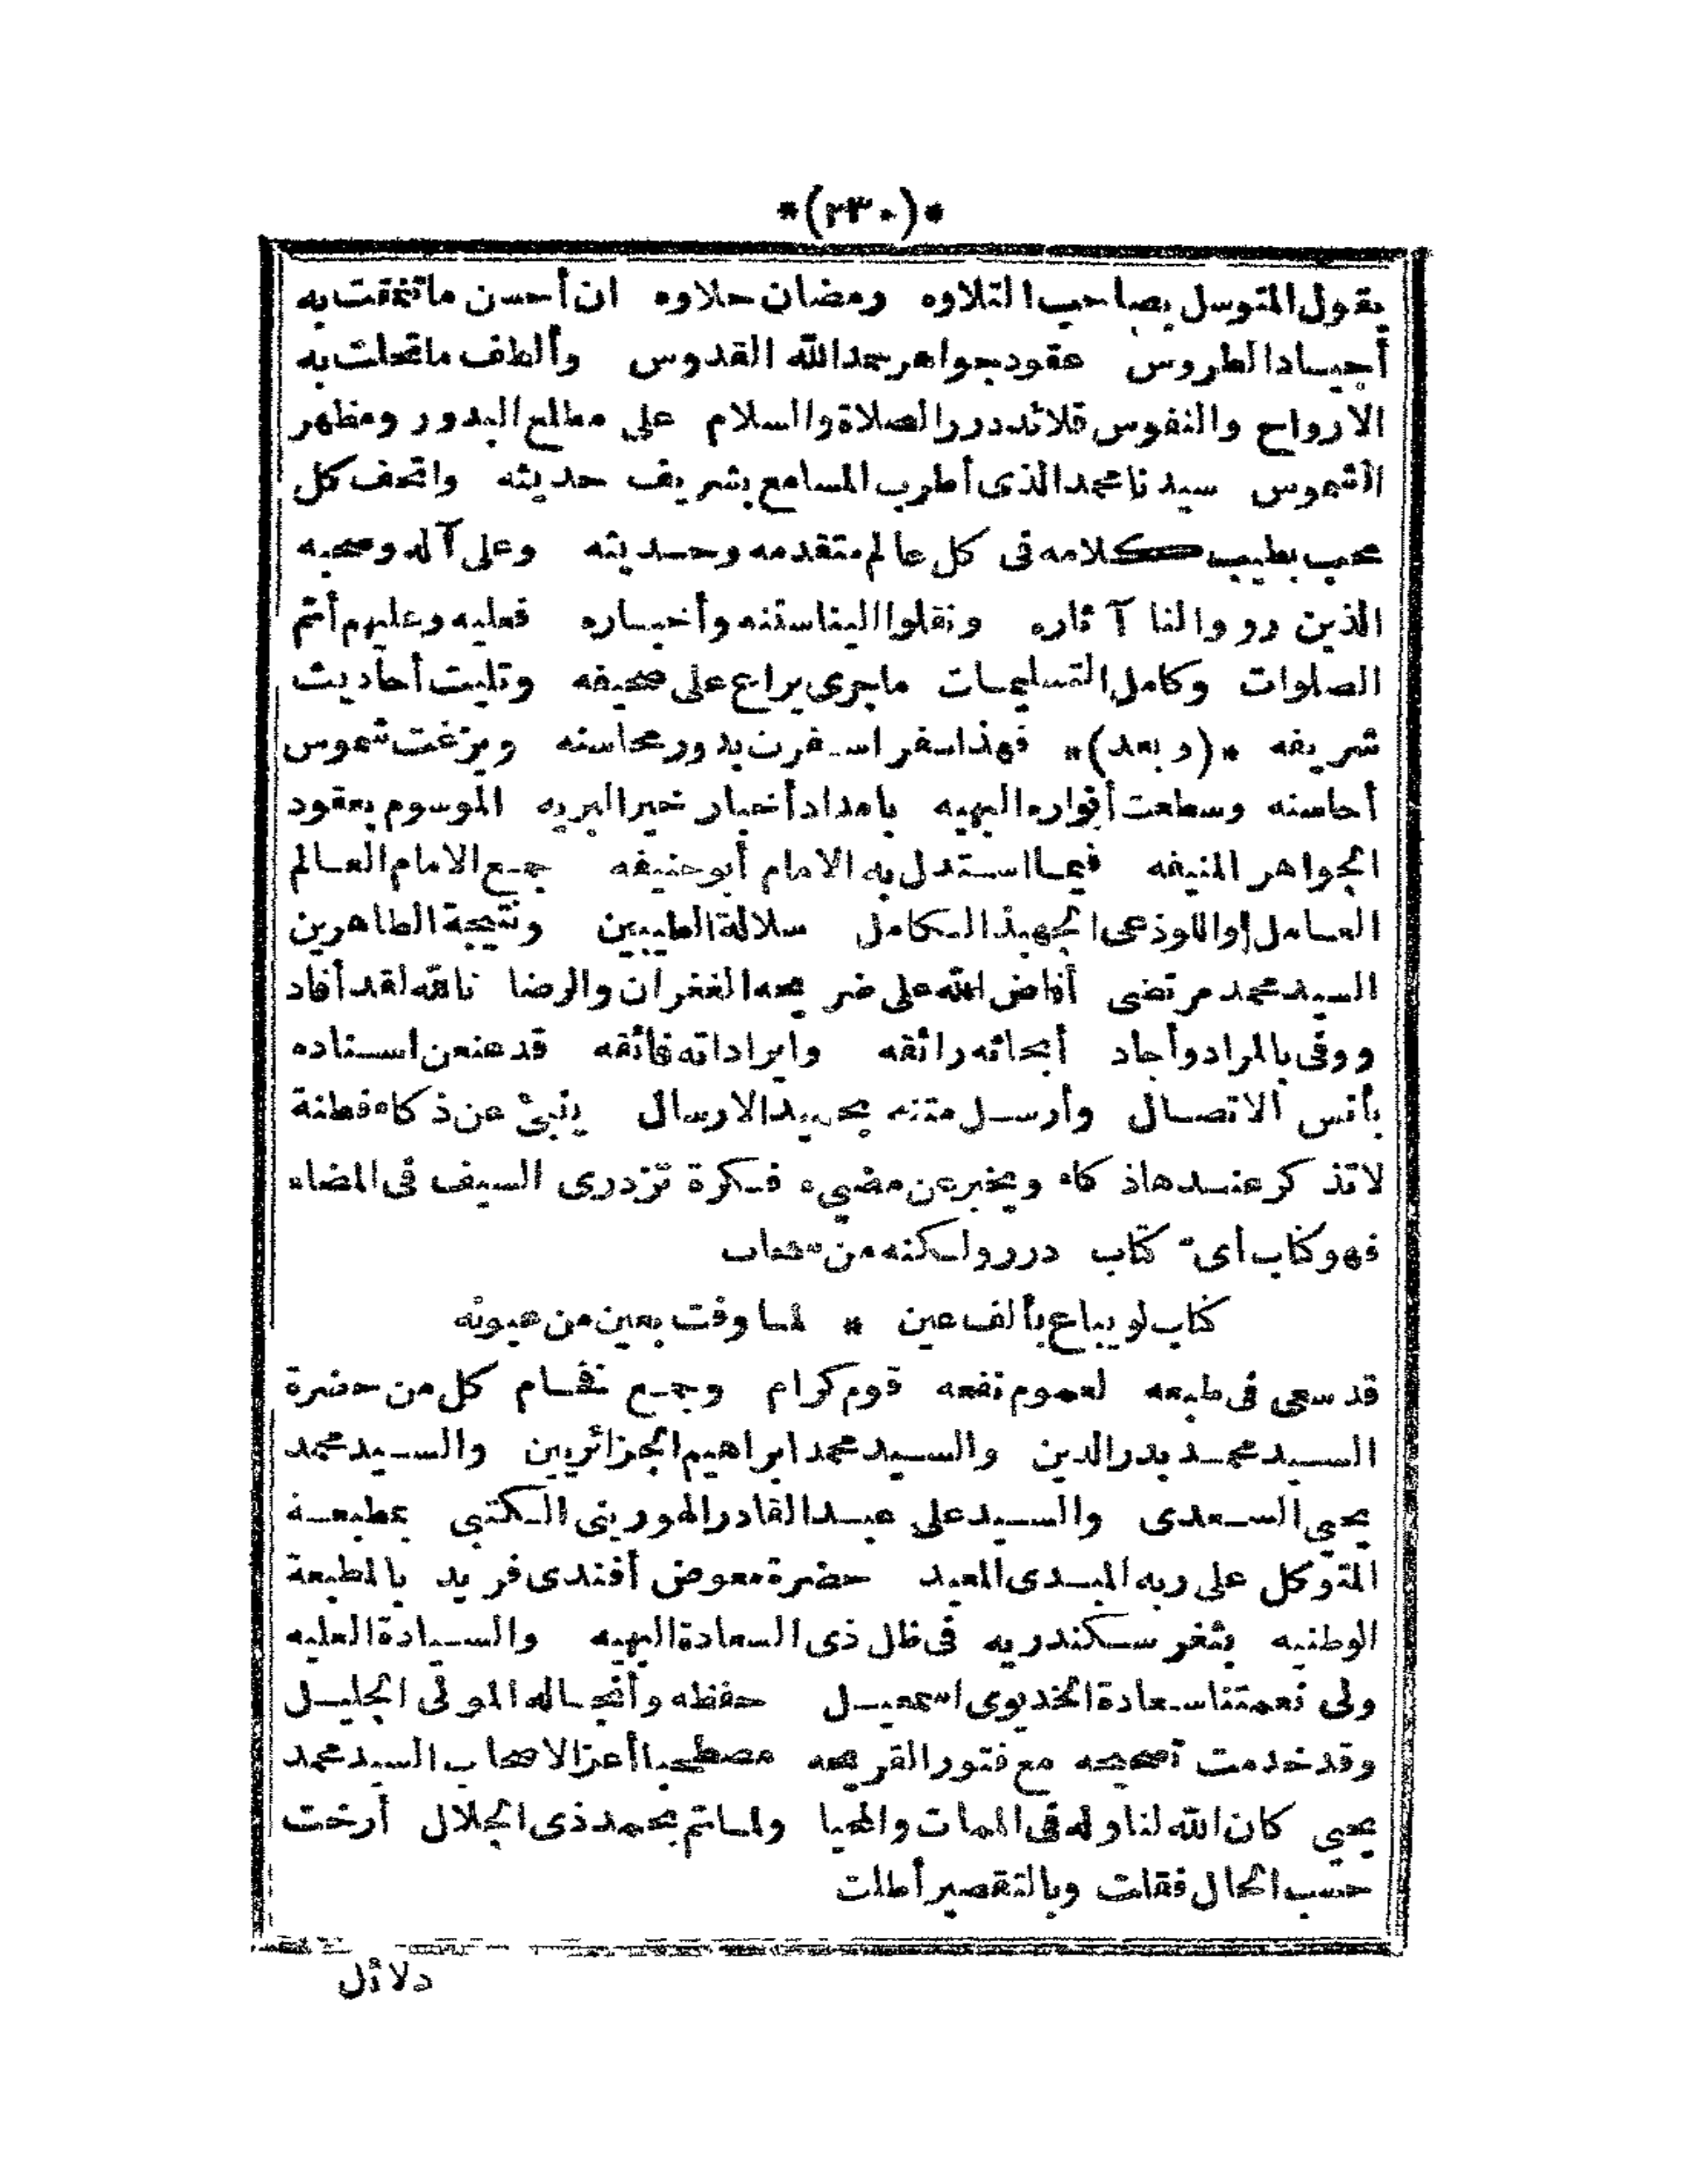 *(٢٣٠)*
يقول المتوسل بصاحب التلاوه رمضان حلاوه ان أحسن ما تنمقت به
أجياد الطروس عقود جواهر حمد الله القدوس وألطف ما تحلت به
الارواح والنفوس قلائد درر الصلاة والسلام على مطلع البدور ومظهر
الشموس سيدنا محمد الذى أطرب المسامع بشريف حديثه واتحف كل
محب بطيب كلامه فى كل عالم متقدمه وحديثه وعلى آله وصحبه
الذين رووا لنا آثاره ونقلوا الينا سننه وأخباره فعليه وعليهم أتم
الصلوات وكامل التسليمات ما جرى يراع على صحيفه وتليت أحاديث
شريفه *(وبعد)* فهذا سفر اسفرت بدور محاسنه وبزغت شموس
أحاسنه وسطعت أنواره البهيه بامداد أخبار خير البريه الموسوم بعقود
الجواهر المنيفه فيما استدل به الامام أبو حنيفه جمع الامام العالم
العامل واللوذعى الجهبذ الكامل سلالة الطيبين ونتيجة الطاهرين
السيد محمد مرتضى أفاض الله على ضريحه الغفران والرضا تالله لقد أفاد
ووفى بالمراد وأجاد أبحاثه رائقه وايراداته فائقه قد عنعن اسناده
بأنس الاتصال وأرسل متنه بحميد الارسال ينبئ عن ذكاء فطنة
لا تذكر عندها ذكاء ويخبر عن مضىء فكرة تزدرى السيف فى المضاء
فهو كتاب أى كتاب درر ولكنه من سحاب
كتاب لو يباع بألف عين * لما وفت بعين من عيونه
قد سعى فى طبعه لعموم نفعه قوم كرام وجمع فخام كل من حضرة
السيد محمد بدر الدين والسيد محمد ابراهيم الجزائريين والسيد محمد
يحيى السعدى والسيد على عبد القادر الهورينى الكتبى بمطبعة
المتوكل على ربه المبدى المعيد حضرة معوض أفندى فريد بالمطبعة
الوطنيه بثغر سكندريه فى ظل ذى السعادة البهيه والسيادة العليه
ولى نعمتنا سعادة الخديوى اسمعيل حفظه وأنجاله المولى الجليل
وقد خدمت تصحيحه مع فتور القريحه مصطحبا أعز الاصحاب السيد محمد
يحيى كان الله لنا وله فى الممات والمحيا ولما تم بحمد ذى الجلال أرخت
حسب الحال فقلت وبالتقصير أطلت
دلائل